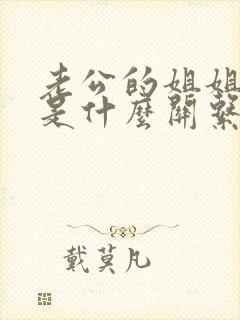 老公的姐姐
是什麼關繫
戴莫凡